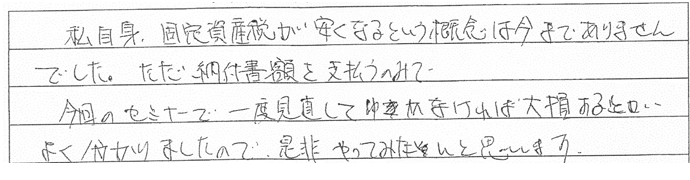 私自身、固定資産税が安くなるという概念は今までありません
でした。ただ納付書額を支払うのみで
今回のセミナーで一度見直してゆかなければ大損ある
よく分かりましたので、是非やってみたいと思います。